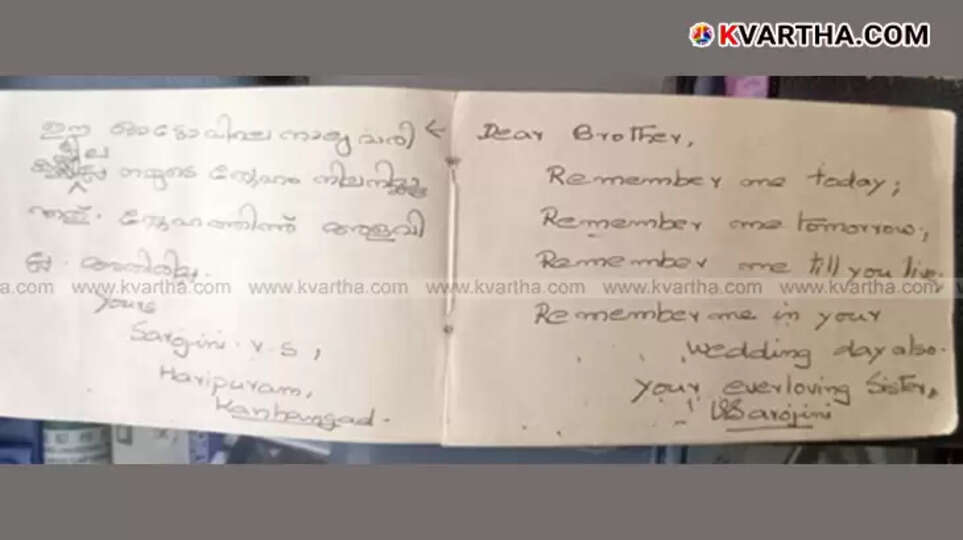 KVARTHA.COM
ഈ ഓട്ടോവിലെ നാലു വരി <
ല
നമ്മുടെ സ്നേഹം
സ്നേഹത്തിന് അളവി
ല്ല. അതിരില്ല.
yours
Sarojini. V. S,
Haripuram,
Kanhangad.
Dear Brother,
Remember me today;
Remember me tomorrow;
Remember me till you live.
Remember me in your
wedding day also.
your everloving Sister,
VSSarojini
www.kvartha.com www.kvartha.com www.kvartha.com www.kvartha.com